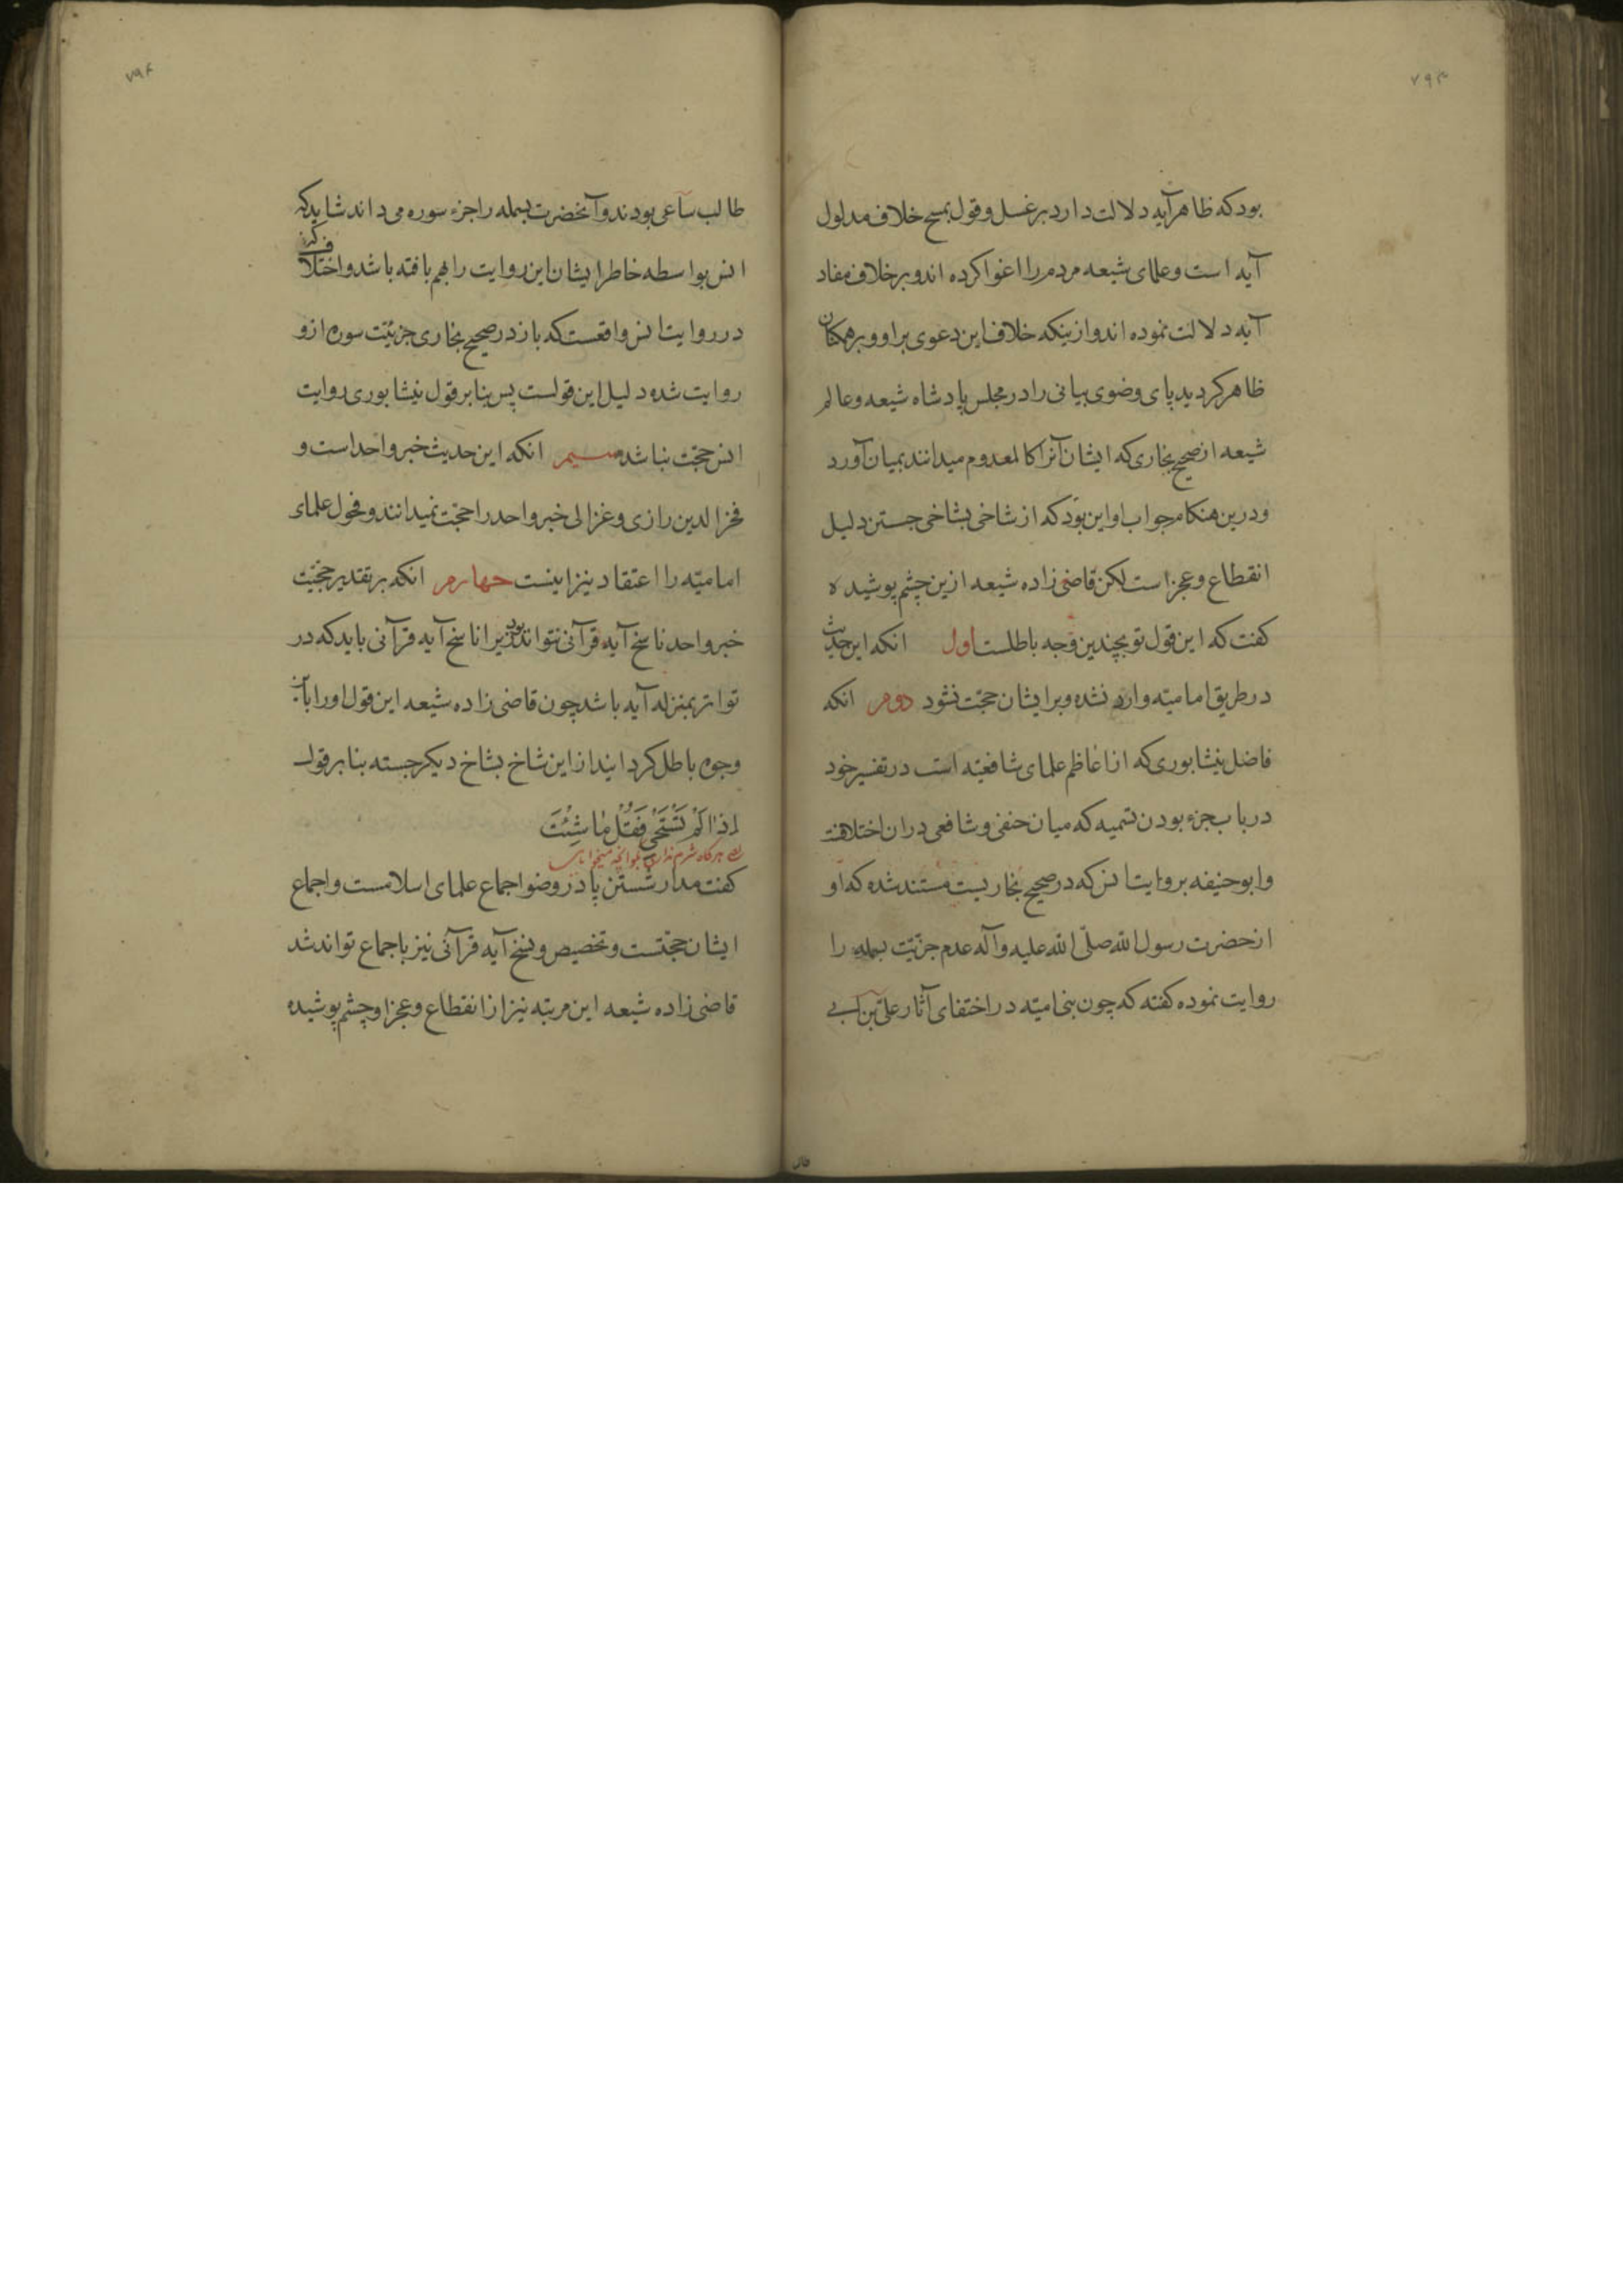 ۷۹۳
بود که ظاهر آیه دلالت دارد بر غسل و قول بمسح خلاف مدلول
آیه است و علمای شیعه مردم را اغوا کرده اند و بر خلاف مفاد
آیه دلالت نموده اند و ازینکه خلاف این دعوی بر او و بر همکنان
ظاهر کردید پای وضوی بیانی را در مجلس پادشاه شیعه و عالم
شیعه از صحیح بخاری که ایشان آنرا کالمعدوم میدانند بمیان آورد
و درین هنکام جواب او این بود که از شاخی بشاخی جستن دلیل
انقطاع و عجز است لکن قاضی زاده شیعه ازین چشم پوشیده
کفت که این قول تو بچندین وجه باطلست اول انکه این حدیث
در طریق امامیّه وارد نشده و بر ایشان حجّت نشود دوم انکه
فاضل نیشابوری که از اعاظم علمای شافعیّه است در تفسیر خود
در باب جزء بودن تسمیه که میان حنفی و شافعی در ان اختلافت
و ابو حنیفه بروایت انس که در صحیح بخاریست مستند شده که او
از حضرت رسول الله صلّی الله علیه و آله عدم جزئیّت بسمله را
روایت نموده کفته که چون بنی امیّه در اختفای آثار علی بن ابی
۷۹۴
طالب ساعی بودند و آنحضرت بسمله را جزء سوره می داند شاید که
انس بواسطه خاطر ایشان این روایت را بهم بافته باشد و اختلاف
در روایت انس واقعست که باز در صحیح بخاری جزئیّت سوره ازو
روایت شده دلیل این قولست پس بنا بر قول نیشابوری روایت
انس حجّت نباشد سیم انکه این حدیث خبر واحد است و
فخر الدین رازی و غزالی خبر واحد را حجّت نمیدانند و فحول علمای
امامیّه را اعتقاد نیز اینست چهارم انکه بر تقدیر حجّیّت
خبر واحد ناسخ آیه قرآنی نتواند بود زیرا ناسخ آیه قرآنی باید که در
تواتر بمنزله آیه باشد چون قاضی زاده شیعه این قول او را باین
وجوه باطل کردانید از این شاخ بشاخ دیکر جسته بنا بر قول
اِذٰا لَمْ تَسْتَحْیِ فَقُلْ مٰا شِئْتَ
هر گاه شرم نداری بگو آنچه میخواهی
کفت مدار شستن پا در وضو اجماع علمای اسلامست و اجماع
ایشان حجّتست و تخصیص و نسخ آیه قرآنی نیز باجماع تواند شد
قاضی زاده شیعه این مرتبه نیز از انقطاع و عجز او چشم پوشیده